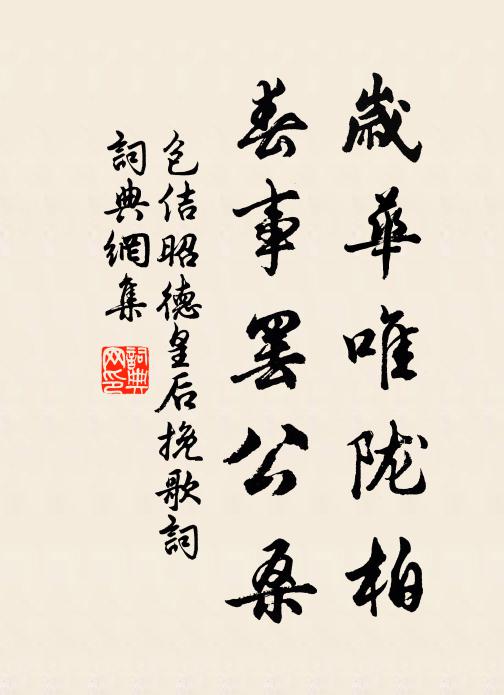 歲華唯陇柏
春事罢公桑
包佶昭德皇后挽歌詞
詞典網集
詞典网印